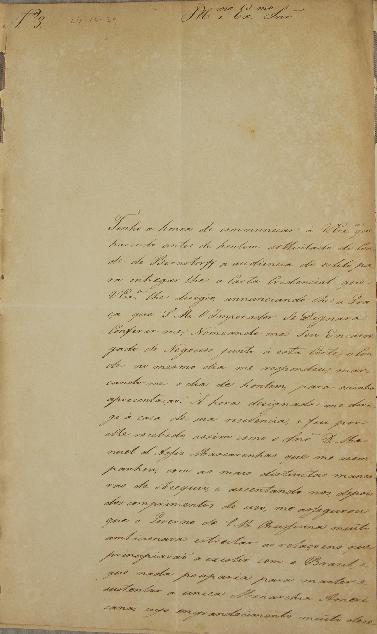 Nº 3
Illmo e Exmo Snr
Tenho a honra de communicar a VExª que
havendo antes de hontem sollicitado do Con-
de de Bernstorff a audiencia de estilo, pa-
ra entregar-lhe a Carta Credencial que
VExª lhe dirigio annunciando-lhe a Gra-
ça que S. M. O Imperador Se Dignara
Conferir-me, Nomeando-me Seu Encarre-
gado de Negocios junto a esta Corte, o Con-
de no mesmo dia me respondeu, mar-
cando-me o dia de hontem, para minha
apresentação. A hora designada me diri-
gi à casa de sua residencia, e fui por
elle recebido assim como o Snr D. Ma-
noel d'Assis Mascarenhas que me acom-
panhou, com as mais distinctas manei-
ras de obsequio, e assentando-nos depois
dos comprimentos de uso, me assegurou
que o Governo de S. M. Prussiana muito
ambicionava estreitar as relaçoens que
principiavão a existir com o Brasil, e
que nada pouparia para manter e
sustentar a unica Monarchia Ameri-
cana, cujo engrandecimento muito